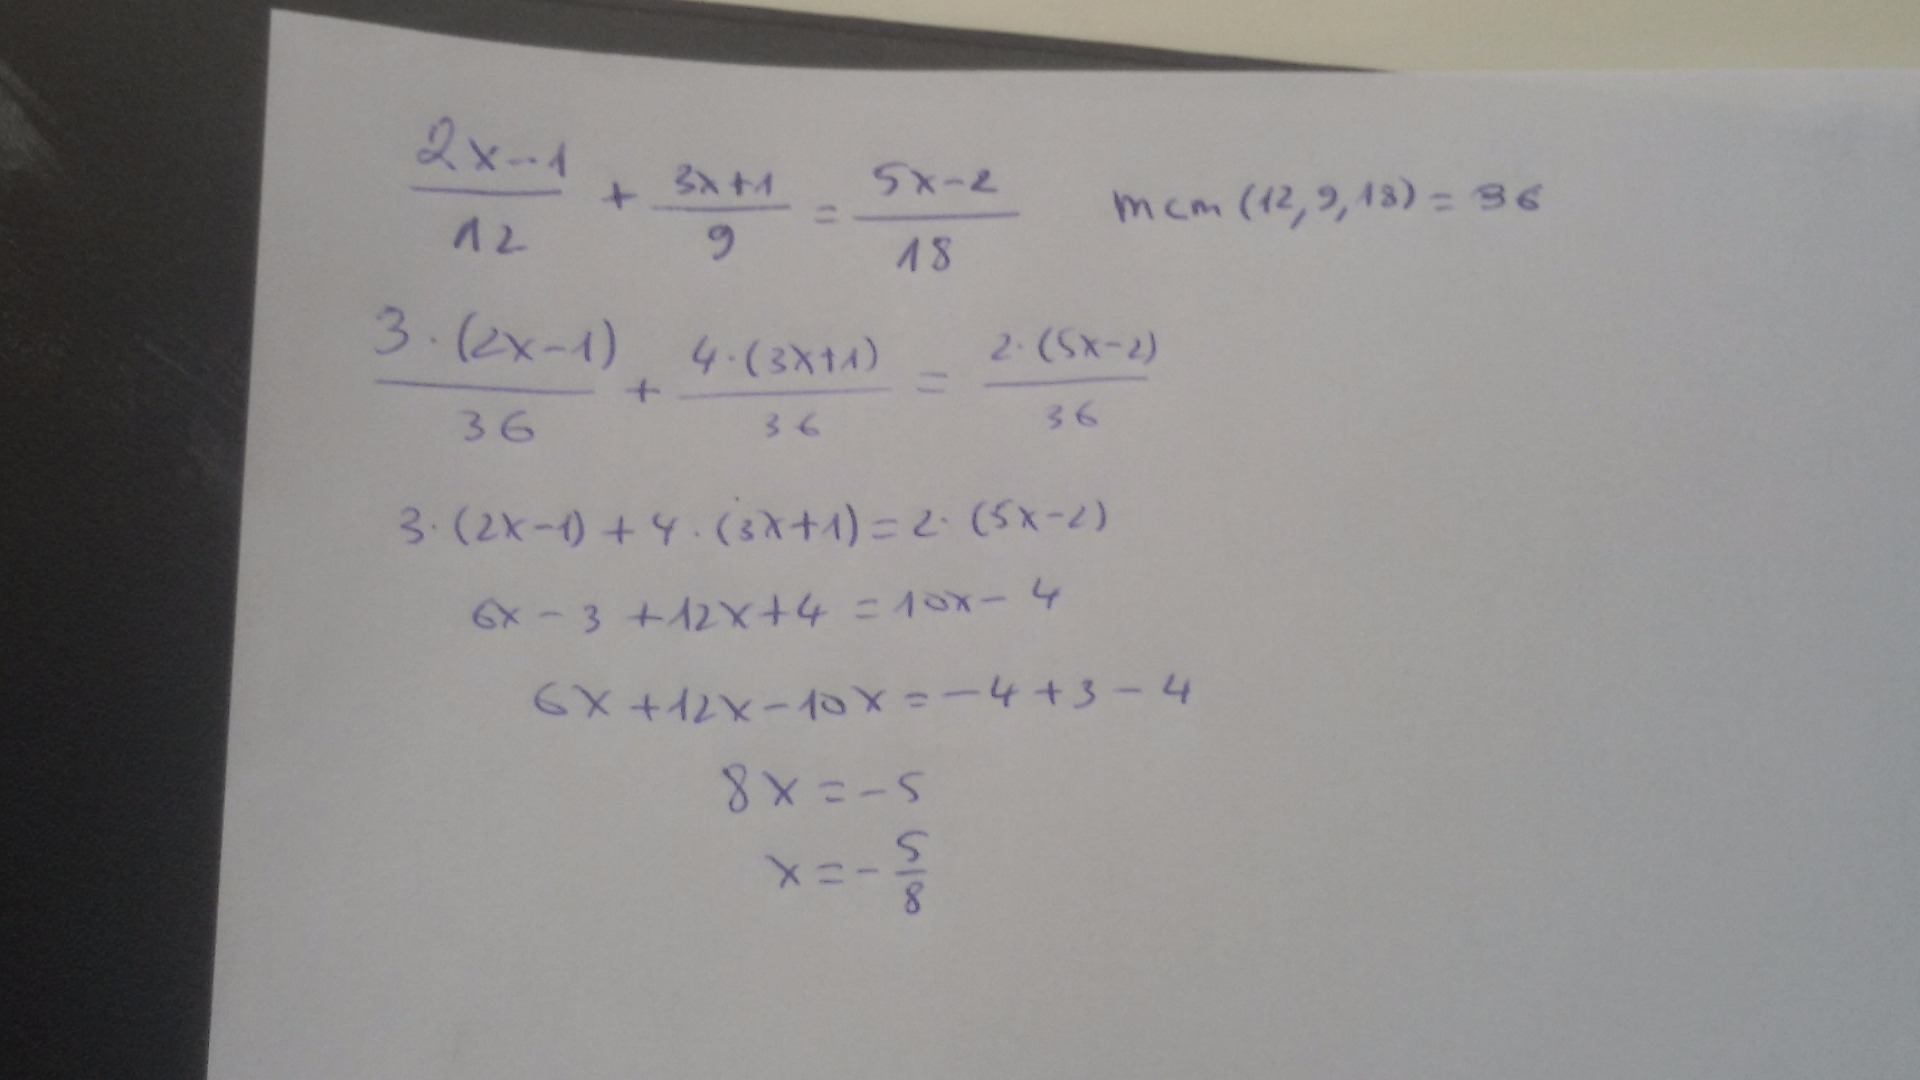 (2x-1)/12 + (3x+1)/9 = (5x-2)/18 mcm (12, 9, 18) = 36
3·(2x-1)/36 + 4·(3x+1)/36 = 2·(5x-2)/36
3·(2x-1) + 4·(3x+1) = 2·(5x-2)
6x - 3 + 12x + 4 = 10x - 4
6x + 12x - 10x = -4 + 3 - 4
8x = -5
x = -5/8